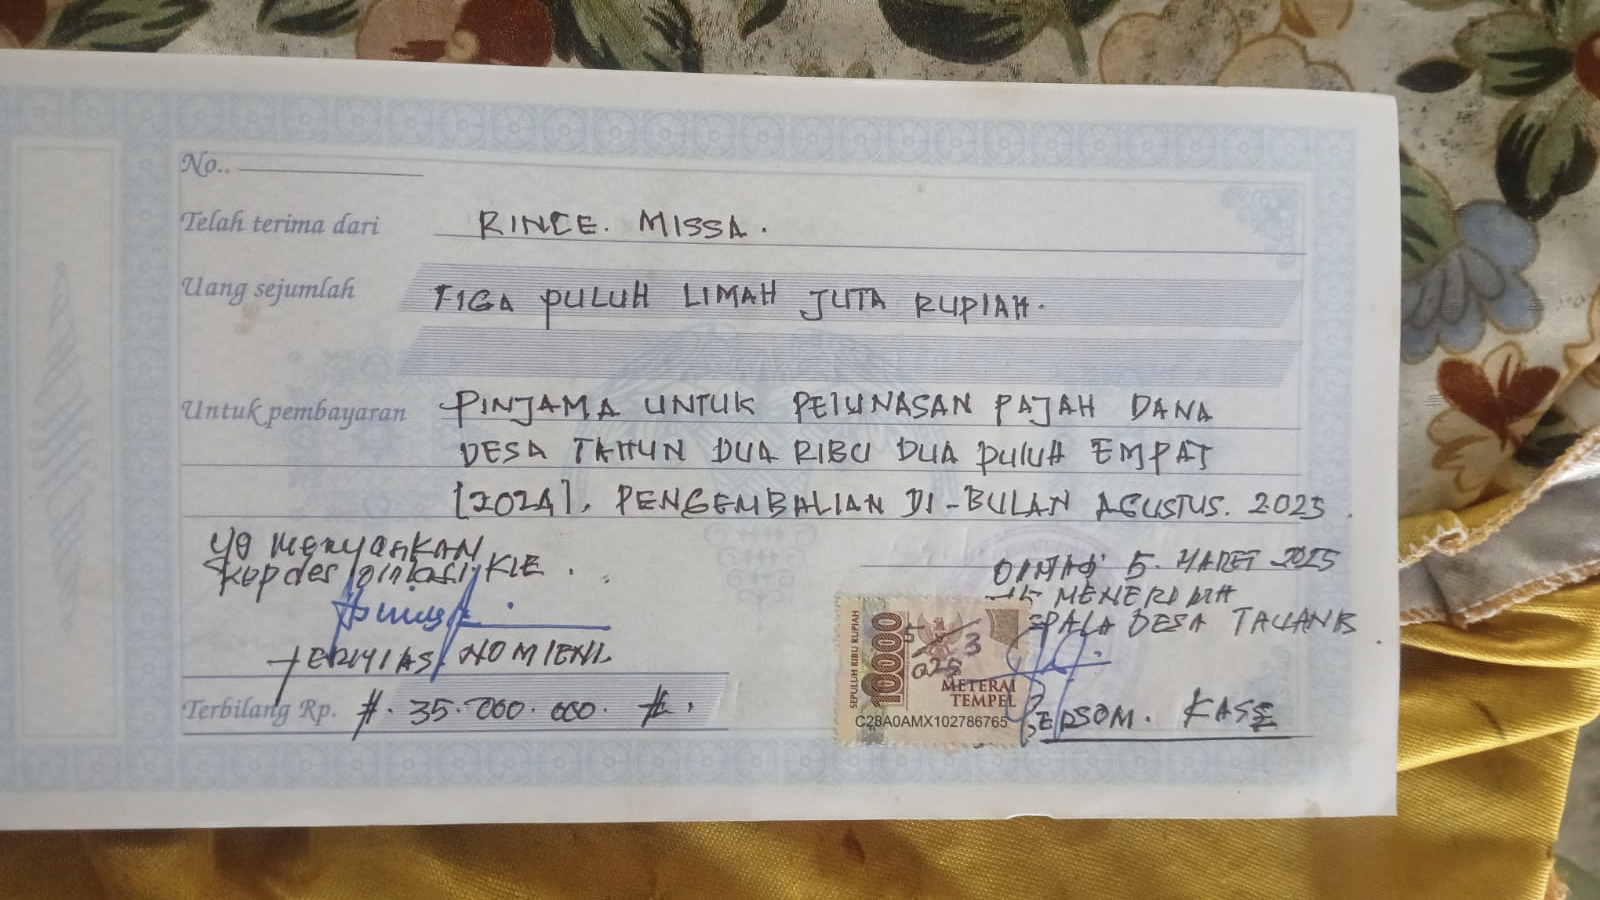 No..
Telah terima dari RINCE. MISSA.
Uang sejumlah TIGA PULUH LIMAH JUTA RUPIAH.
Untuk pembayaran PINJAMA UNTUK PELUNASAN PAJAH DANA
DESA TAHUN DUA RIBU DUA PULUH EMPAT
[2024]. PENGEMBALIAN DI-BULAN AGUSTUS. 2025.
YG MENYAKKAN
KIE.
5. MARET 2025
MENERIMAH
DESA
NOMIENI
KASE
SEPULUH RIBU RUPIAH
10000
5 3
METERAI
TEMPEL
C28A0AMX102786765
Terbilang Rp. #. 35.000.000. #.